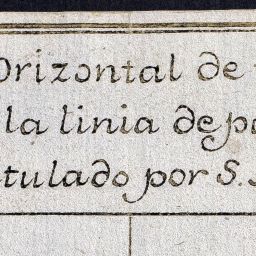 Orizontal de
la linia de pa
tulado por S.